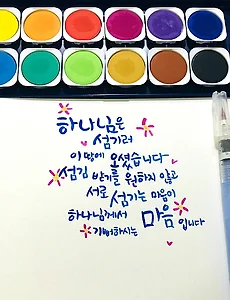 하나님은
섬기러
이 땅에 오셨습니다
섬김 받기를 원하지 않고
서로 섬기는 마음이
하나님께서 마음입니다
기뻐하시는